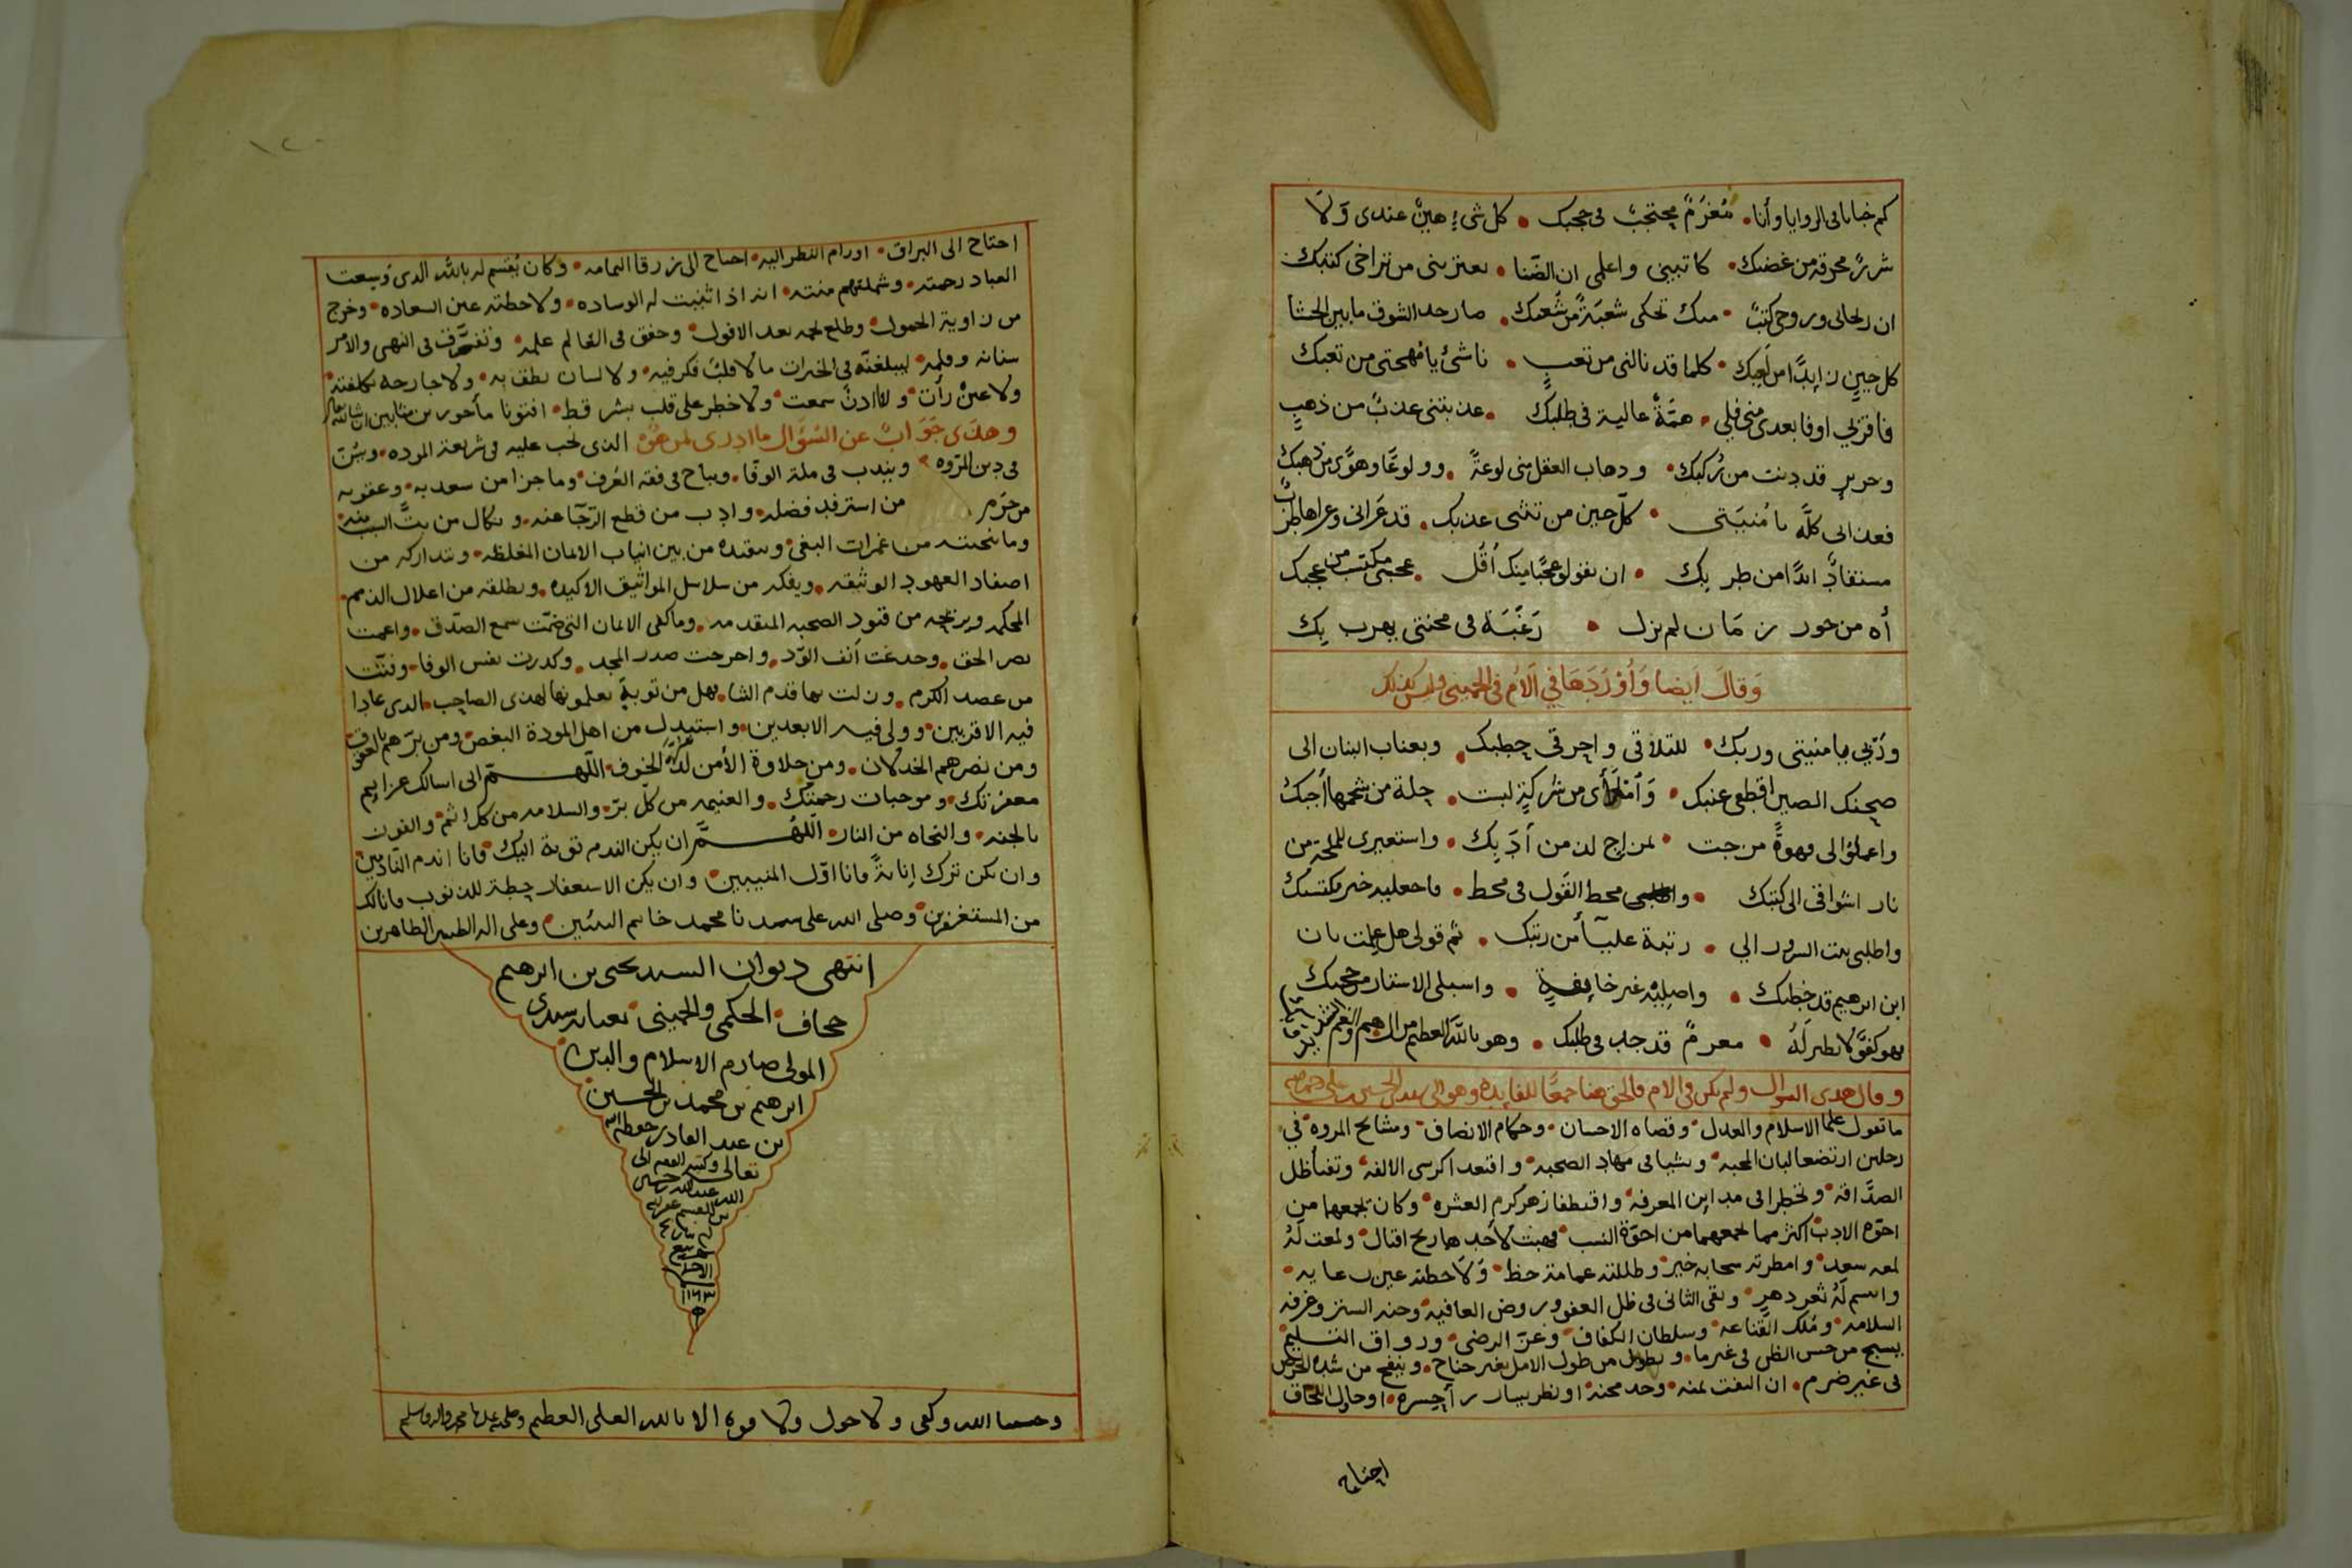 كم خبايا في الزوايا وأنا • مُغرَمٌ محتجبٌ في حجبك • كل شيءٍ هينٌ عندي وَلَا
شررٌ محرقه من غضبك • كاتبيني واعلمي ان الضّنا • يعتريني من تراخي كتبك
ان ريحاني وروحي كتبٌ • منك تحكي شعبَةً من شُعبك • صار حد الشوق ما بين الحشا
كل حينٍ زايدًا من لَعِبك • كلما قد نالني من تعبٍ • ناشئٌ يا مُهجتي من تعبك
همَّةٌ عالية في طلبك • عذبتني عذبٌ من ذهبٍ
وحريرٍ قد دنت من رُكبك • وذهاب العقل مني لوعةً • وولوعًا وهوًى من ذهبك
كلّ حين من تثني عذبك • قد عَراني وعراها طربٌ
مستفادٌ ابدًا من طربك • ان يقولوا عجبًا منك أقُل • عجبي مكتسب من عجبك
أه من حور زمَان لم يزل • رَغبَة في محنتي يهرب بك
وَقالَ أيضا وَأوْرَدَهَا في الأم في الحميني وليس كذلك
ورّبي يا منيتي وربك • للتلاقي واحرقي حطبك • وبعناب البنان الى
صحنك الصين اقطعي عنبك • من شركةٍ لبت • جلة من شحمها
واعملوا لي قهوةً مزجت • لمزاجٍ لذ من أدَبك • واستعيري للملحة من
نار اشواقي الى كتبك • محط القول في محط • واجعليه خير مكتسبك
واطلبي بيت السرور الي • رتبة عليّا من رتبك • ثم قولي هل علمت بان
ابن ابرهيم قد خطبك • واصليْه غير خايفةٍ • واسبلي الاستار من حجبك
فهو كفؤٌ لا نظير لَهُ • مغرمٌ قد جد في طلبك • وهو بالله العظيم من الهم والغم
وقال هذى السوال ولم يكن في الام فالحق هنا جمعًا للفايده وهو الى سيدي الحسين بن علي
ما تقول علما الاسلام والعدل • وقضاه الاحسان • وحكام الانصاف • ومشايخ المروه • في
رجلين ارتضعا لبان المحبه • ونشيا في مهاد الصحبه • واقتعدا كرسي الالفه • وتفيأ ظل
الصدَّاقه • وتخطرا في ميداين المعرفه • واقتطفا زهر كرم العشره • وكان تجمعهما من
اخوّه الادب اكثر مما يجمعهما من اخوّة النسب • فهبت لأحدهما ريح اقبال • ولمعت لَهُ
لمعه سعد • وامطرته سحابه خير • وظللته غمامة حظ • وَلَاحظته عين رعايه •
وابتسم لَهُ ثغر دهرٍ • وبقي الثاني في ظل العفو وروض العافيه • وجنه الستر وغرفه
السلامه • ومُلك القَناعه • وسلطان الكفاف • وعزّ الرضى • ورواق التسليم •
يسبح من حسن الظن في غير ما • ويطول من طول الامل بغير جناح • وينفخ من شده الحرص
في غير ضرم • ان التفت لمنه • وجد محنة • او نظر بيسار راَ حسره • او حاول اللحاق
احتاج
١٢٠
احتاج الى البراق • اورام النظر اليه • احتاج الى زرقا اليمامه • وكان يُقسم له بالله الذي وَسعت
العباد رحمته • وشملتهم منته • انه اذا ثنيت له الوساده • ولاحظته عين السعاده • وخرج
من زاوية الخمول • وطلع نجمه بعد الافول • وخفق في العالم علمه • وتصَّرف في النهى والأمر
سنانه وقلمه • ليبلغنّه في الخيرات ما لا قلبٌ فكر فيه • ولا لسان نطق به • ولا جارحه تكلفته •
ولا عينٌ رأت • ولا اذنٌ سمعت • ولا خطر على قلب بشر قط • افتونا مأجورين مثابين ان شا الله
وهذى جَوَابٌ عن السُوَال ما ادري لمن هُوَ • الذي يجب عليه في شريعة الموده • ويُسن
في دين المروه • ويندب في ملة الوفا • ويباح في فقه العُرف • وما جزا من سعد به • وعقوبه
من حَرم من استرفد فضله • وادب من قطع الرّجا عنه • ونكال من
وما ينجيه من غمرات البغي • وينقذه من بين انياب الايمان المغلظه • ويتداركه من
اصفاد العهود الوثيقه • ويفكه من سلاسل المواثيق الاكيده • ويطلقه من اغلال الذمم •
المحكمه ويزحزحه من قيود الصحبه المتقدمه • وما كفى الايمان التي صمّت سمع الصدّق • واعمت
بصر الحق • وجدعت أنف الوّد • واحرجت صدر المجد • وكدرت نفس الوفا • وفتّت
من عضد الكرم • وزلت بها قدم الثنا • فهل من توبةٍ تعلمونها لهذى الصاحب • الذي عادا
فيه الاقربين • وولى فيه الابعدين • واستبدل من اهل المودة البغض • ومن برّهم العقوق
ومن نصرهم الخذلان • ومن حلاوة الأمن لذة الخوف • اللّهم اني اسالك عزايم
مغفرتك • وموجبات رحمتك • والغنيمه من كلّ برّ • والسلامه من كل اثم • والفوز
بالجنه • والنجاه من النار • اللّهُمَّ ان يكن الندم توبة اليك • فانا اندم النّادمين •
وان يكن تركٌ إنابةً فانا اوّل المنيبين • وان يكن الاستغفار حِطة للذنوب فانا لك
من المستغفرين • وصلى الله على سيدنا محمد خاتم النبيين • وعلى اله الطيبين الطاهرين
انتهى ديوان السيد يحيى بن ابرهيم
جحاف • الحكمي والحميني • بعنايه سيدي
المولى صارم الاسلام والدين
ابرهيم بن محمد بن الحسين
بن عبد القادر حفظه الله
تعالى وكتبه الفقير الى
الله عبدالله
ربيع
الاخر
١١٦٣
وحسبنا الله وكفى ولا حول ولا قوه الا بالله العلي العظيم وصلى الله على سيدنا محمد واله وسلم